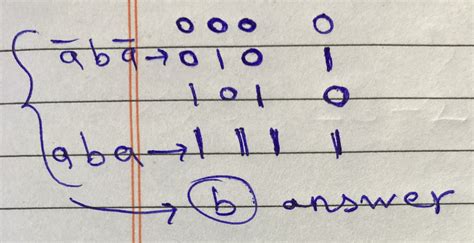 000 0
ā b ā → 010 1
101 0
a b a → 111 1
→ b answer